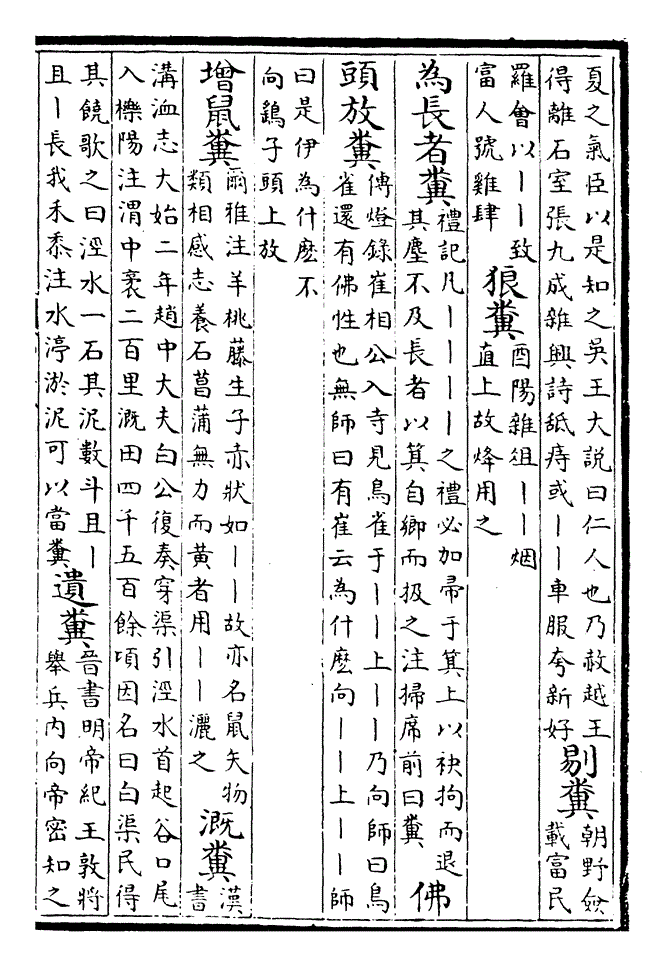 夏之氣臣以是知之吳王大説曰仁人也乃赦越王
得離石室張九成雜興詩舐痔或丨丨車服夸新好
剔糞
朝野僉
載富民
羅會以丨丨致
富人號雞肆
狼糞
酉陽雜俎丨丨烟
直上故烽用之
為長者糞
禮記凡丨丨丨丨之禮必加帚于箕上以袂拘而退
其塵不及長者以箕自鄉而扱之注掃席前曰糞
佛
頭放糞
傳燈錄崔相公入寺見鳥雀于丨丨上丨丨乃向師曰鳥
雀還有佛性也無師曰有崔云為什麽向丨丨上丨丨師
曰是伊為什麽不
向鷂子頭上放
增鼠糞
爾雅注羊桃藤生子赤狀如丨丨故亦名鼠矢物
類相感志養石菖蒲無力而黄者用丨丨灑之
溉糞
漢
書
溝洫志大始二年趙中大夫白公復奏穿渠引涇水首起谷口尾
入櫟陽注渭中袤二百里溉田四千五百餘項因名曰白渠民得
其饒歌之曰涇水一石其泥數斗且丨
且丨長我禾黍注水渟淤泥可以當糞
遺糞
晉書明帝紀王敦將
舉兵内向帝密知之